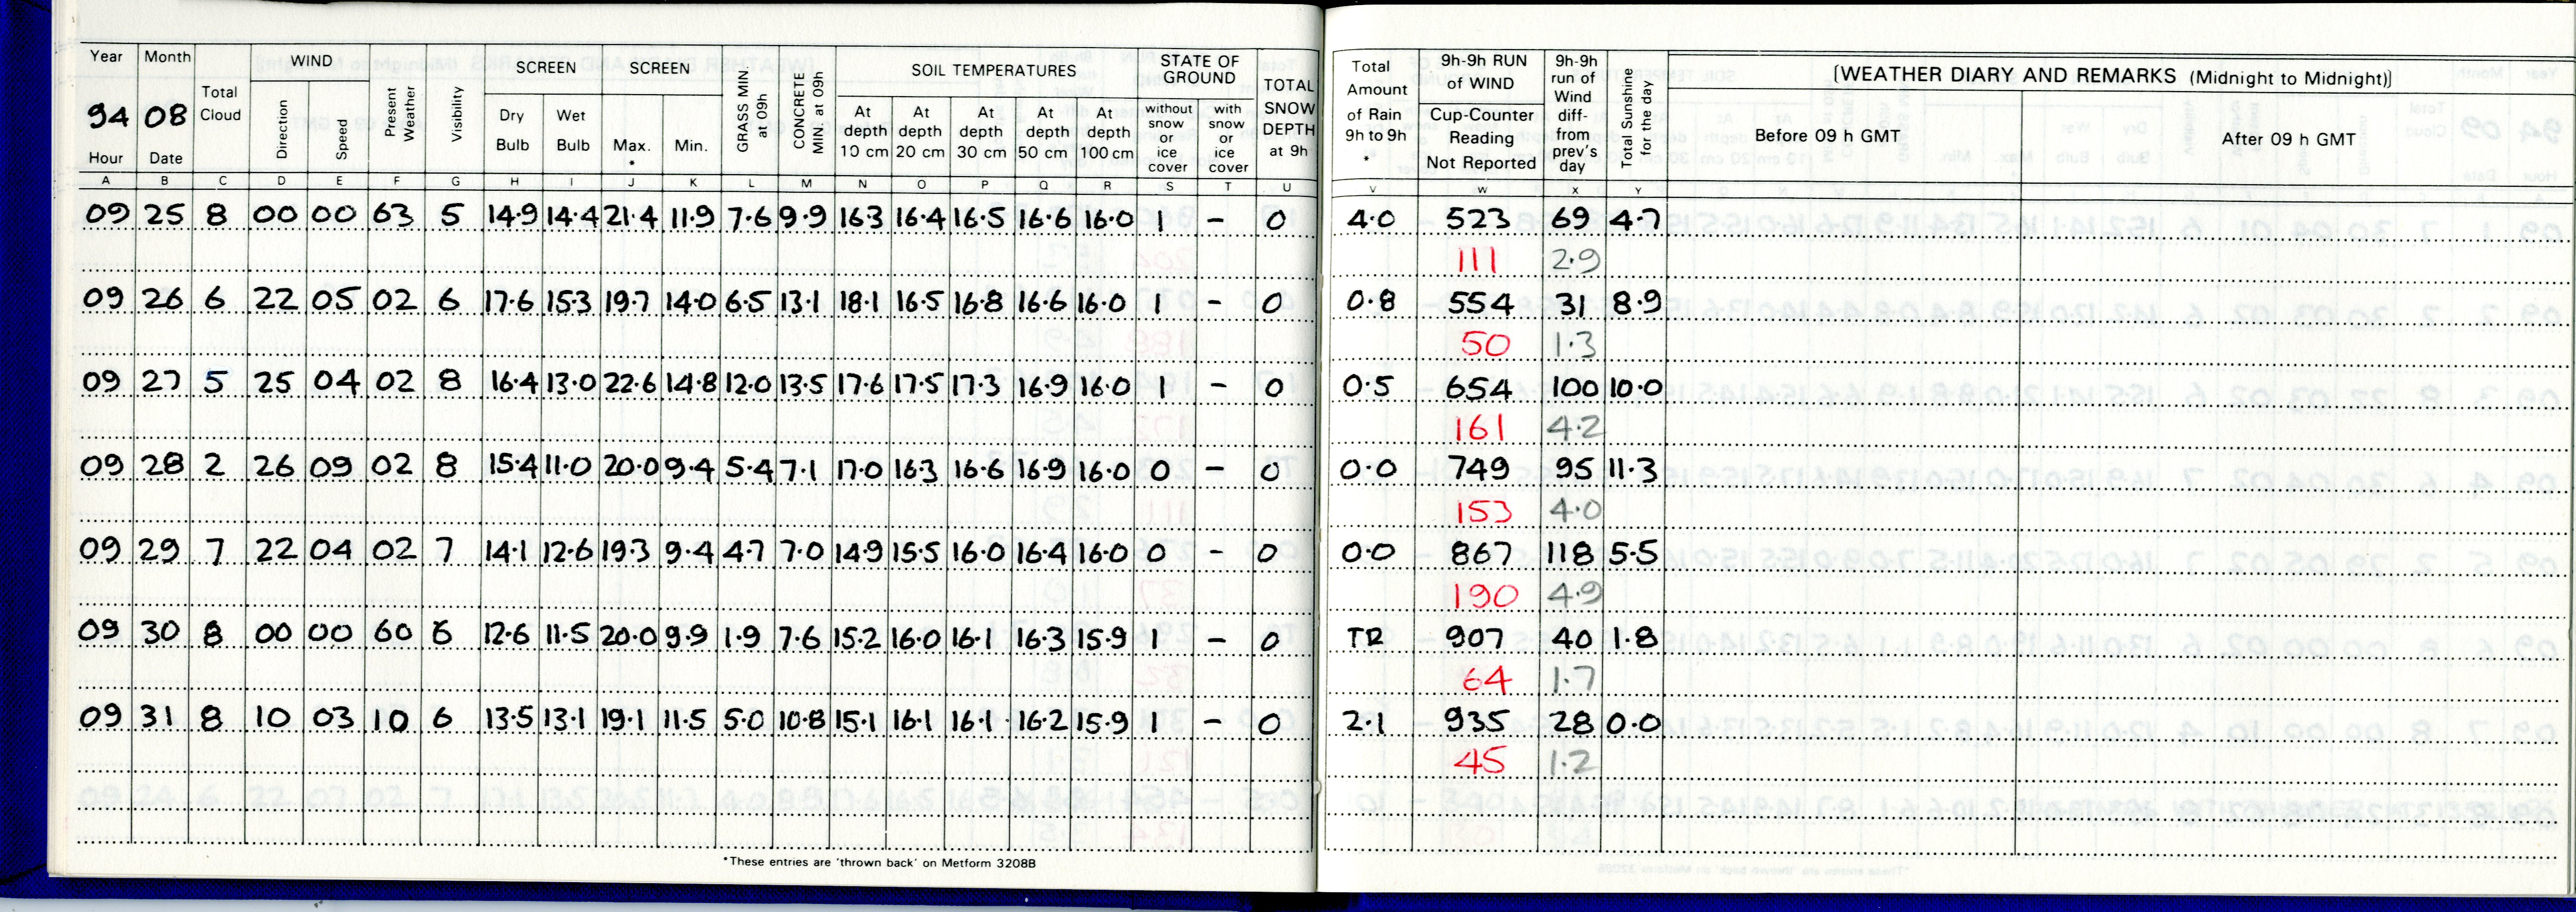 Year Month Total Cloud WIND Present Weather Visibility SCREEN SCREEN GRASS MIN. at 09h CONCRETE MIN. at 09h SOIL TEMPERATURES STATE OF GROUND TOTAL SNOW DEPTH at 9h
94 08 Direction Speed Dry Bulb Wet Bulb Max. * Min. At depth 10 cm At depth 20 cm At depth 30 cm At depth 50 cm At depth 100 cm without snow or ice cover with snow or ice cover
Hour Date
A B C D E F G H I J K L M N O P Q R S T U
09 25 8 00 00 63 5 14.9 14.4 21.4 11.9 7.6 9.9 16.3 16.4 16.5 16.6 16.0 1 – 0
09 26 6 22 05 02 6 17.6 15.3 19.7 14.0 6.5 13.1 18.1 16.5 16.8 16.6 16.0 1 – 0
09 27 5 25 04 02 8 16.4 13.0 22.6 14.8 12.0 13.5 17.6 17.5 17.3 16.9 16.0 1 – 0
09 28 2 26 09 02 8 15.4 11.0 20.0 9.4 5.4 7.1 17.0 16.3 16.6 16.9 16.0 0 – 0
09 29 7 22 04 02 7 14.1 12.6 19.3 9.4 4.7 7.0 14.9 15.5 16.0 16.4 16.0 0 – 0
09 30 8 00 00 60 6 12.6 11.5 20.0 9.9 1.9 7.6 15.2 16.0 16.1 16.3 15.9 1 – 0
09 31 8 10 03 10 6 13.5 13.1 19.1 11.5 5.0 10.8 15.1 16.1 16.1 16.2 15.9 1 – 0
*These entries are 'thrown back' on Metform 3208B
Total Amount of Rain 9h to 9h * 9h-9h RUN of WIND Cup-Counter Reading Not Reported 9h-9h run of Wind diff- from prev's day Total Sunshine for the day [WEATHER DIARY AND REMARKS (Midnight to Midnight)]
Before 09 h GMT After 09 h GMT
V W X Y
4.0 523 69 4.7
111 2.9
0.8 554 31 8.9
50 1.3
0.5 654 100 10.0
161 4.2
0.0 749 95 11.3
153 4.0
0.0 867 118 5.5
190 4.9
TR 907 40 1.8
64 1.7
2.1 935 28 0.0
45 1.2